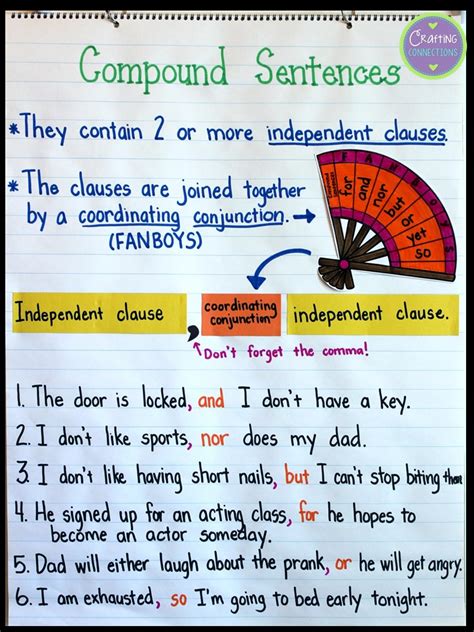 CRAFTING
CONNECTIONS
Compound Sentences
*They contain 2 or more independent clauses.
*The clauses are joined together
by a coordinating conjunction.→
(FANBOYS)
F A N B O Y S
for
and
nor
but
or
yet
so
Independent clause
,
coordinating
conjunction
independent clause.
Don't forget the comma!
1. The door is locked, and I don't have a key.
2. I don't like sports, nor does my dad.
3. I don't like having short nails, but I can't stop biting them
4. He signed up for an acting class, for he hopes to
become an actor someday.
5. Dad will either laugh about the prank, or he will get angry.
6. I am exhausted, so I'm going to bed early tonight.